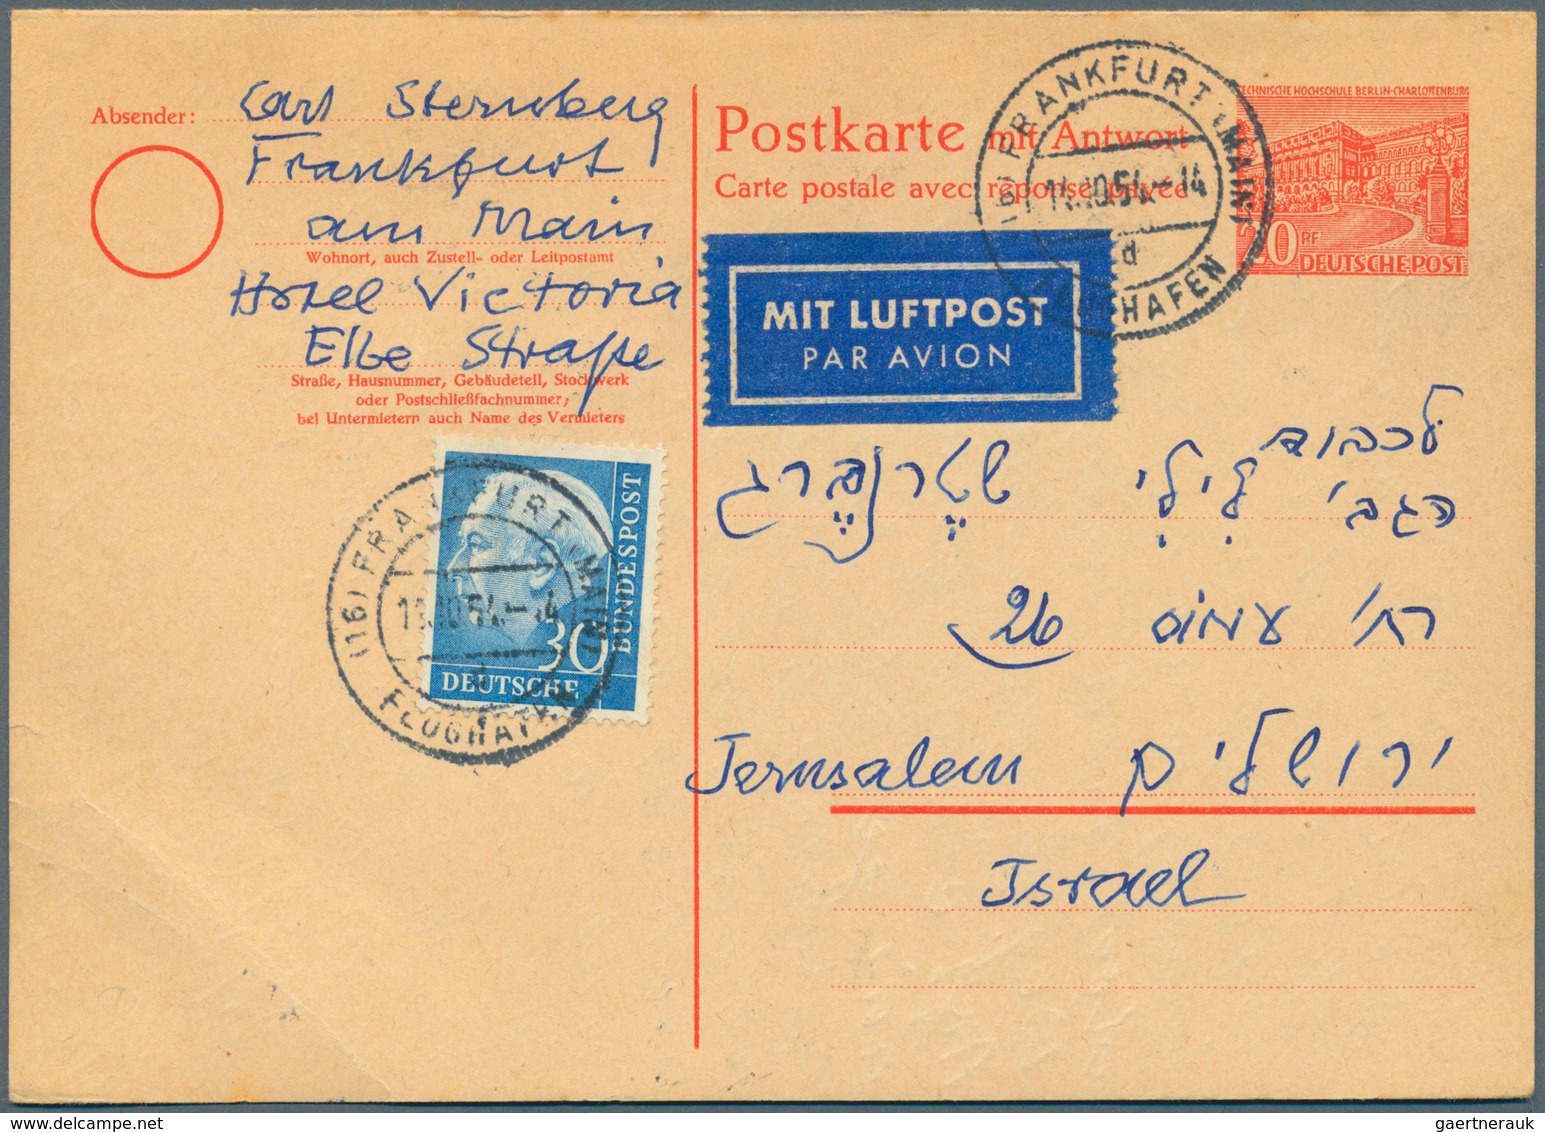 Absender: Carl Sternberg
Frankfurt
am Main
Wohnort, auch Zustell- oder Leitpostamt
Hotel Victoria
Elbe Straße
Straße, Hausnummer, Gebäudeteil, Stockwerk
oder Postschließfachnummer;
bei Untermietern auch Name des Vermieters
Postkarte mit Antwort
Carte postale avec réponse payée
TECHNISCHE HOCHSCHULE BERLIN-CHARLOTTENBURG
20 PF
DEUTSCHE POST
(16) FRANKFURT (MAIN)
14.10.54.-14
d
FLUGHAFEN
MIT LUFTPOST
PAR AVION
לכבוד
הגב' לִילִי שטֶרנבֶּרג
רח' עמוס 26
Jerusalem ירושלים
Israel
30
DEUTSCHE
BUNDESPOST
(16) FRANKFURT (MAIN)
.10.54.-14
d
FLUGHAFEN
gaertnerauk @ delcampe.net